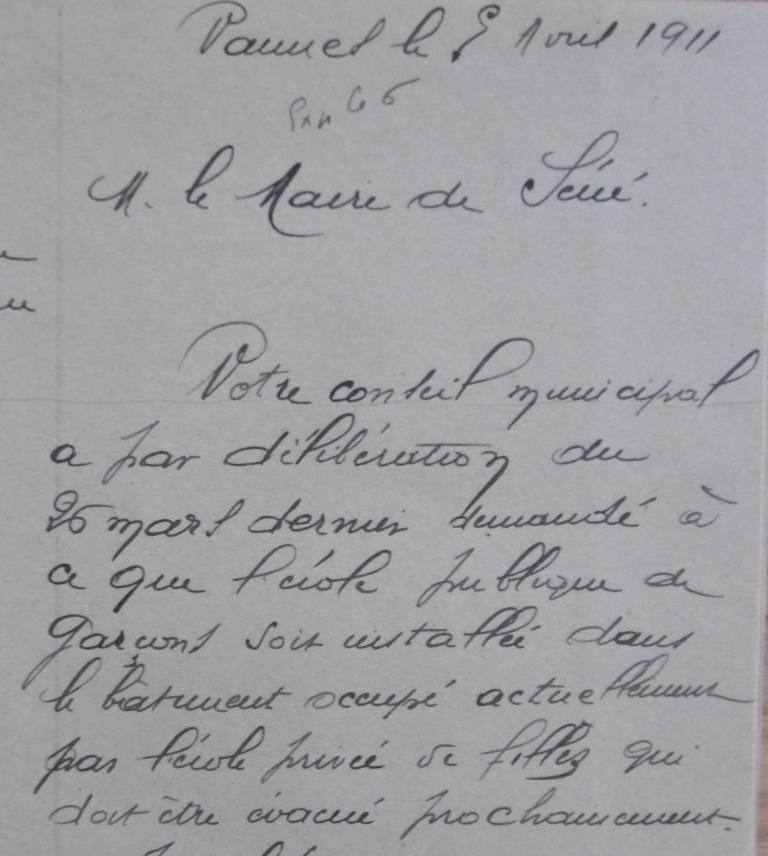 Vannes le 5 Avril 1911
M. le Maire de Séné.
Votre conseil municipal
a par délibération du
26 mars dernier demandé à
ce que l'école publique de
Garçons soit installée dans
le bâtiment occupé actuellement
par l'école privée de filles qui
doit être évacué prochainement.